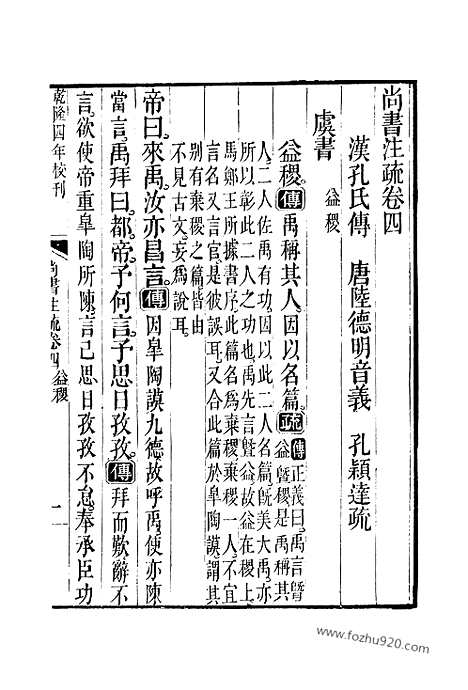 尚書注疏卷四
漢孔氏傳 唐陸德明音義 孔穎達疏
虞書
益稷
益稷。傳禹稱其人。因以名篇。疏傳正義曰。禹言曁
益曁稷是禹稱其
人。二人佐禹有功。因以此二人名篇。旣美大禹。亦
所以彰此二人之功也。禹先言曁益。故益在稷上。
馬鄭王所據書序。此篇名爲棄稷。棄稷一人。不宜
言名又言官。是彼誤耳。又合此篇於皋陶謨。謂其
别有棄稷之篇。皆由
不見古文。妄爲說耳。
帝曰。來禹。汝亦昌言。傳因皋陶謨九德。故呼禹。使亦陳
當言。禹拜曰。都。帝。予何言。予思日孜孜。傳拜而歎。辭不
言。欲使帝重皋陶所陳。言己思日孜孜不怠。奉承臣功
乾隆四年校刊
尚書注疏卷四 益稷
一
www.fozhu920.com